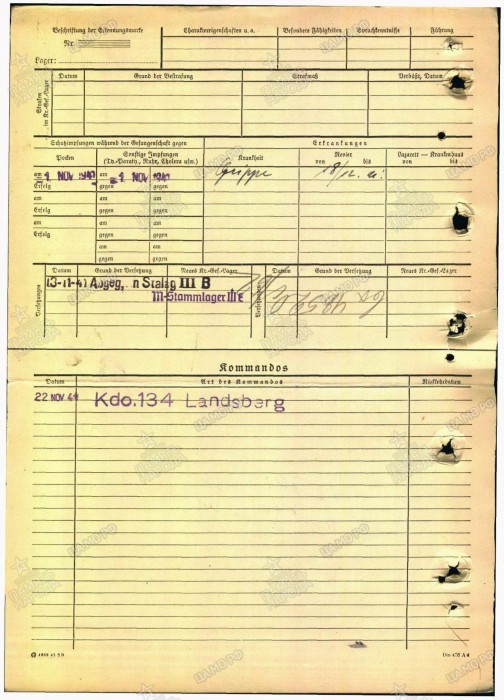 Beschriftung der Erkennungsmarke
Nr.
Lager:
Charaktereigenschaften u. a.
Besondere Fähigkeiten
Sprachkenntnisse
Führung
Strafen im Kr.-Gef.-Lager
Datum
Grund der Bestrafung
Strafmaß
Verbüßt, Datum
Schutzimpfungen während der Gefangenschaft gegen
Erkrankungen
Pocken
Sonstige Impfungen
(Ty.-Paraty., Ruhr, Cholera usw.)
Krankheit
Revier
von bis
Lazarett — Krankenhaus
von bis
am 1. NOV. 1941 am 1. NOV. 1941 am Grippe 18/12. 41.
Erfolg gegen gegen
am am am
Erfolg gegen gegen
am am am
Erfolg gegen gegen
am am
gegen gegen
Versetzungen
Datum Grund der Versetzung Neues Kr.-Gef.-Lager
Versetzungen
Datum Grund der Versetzung Neues Kr.-Gef.-Lager
13-11-41 Abgeg. in Stalag III B
M-Stammlager III E
Kommandos
Datum Art des Kommandos Rückkehrdatum
22 NOV. 41 Kdo.134 Landsberg
4909 41 5 B
Din 476 A 4
ЦАМО.РФ